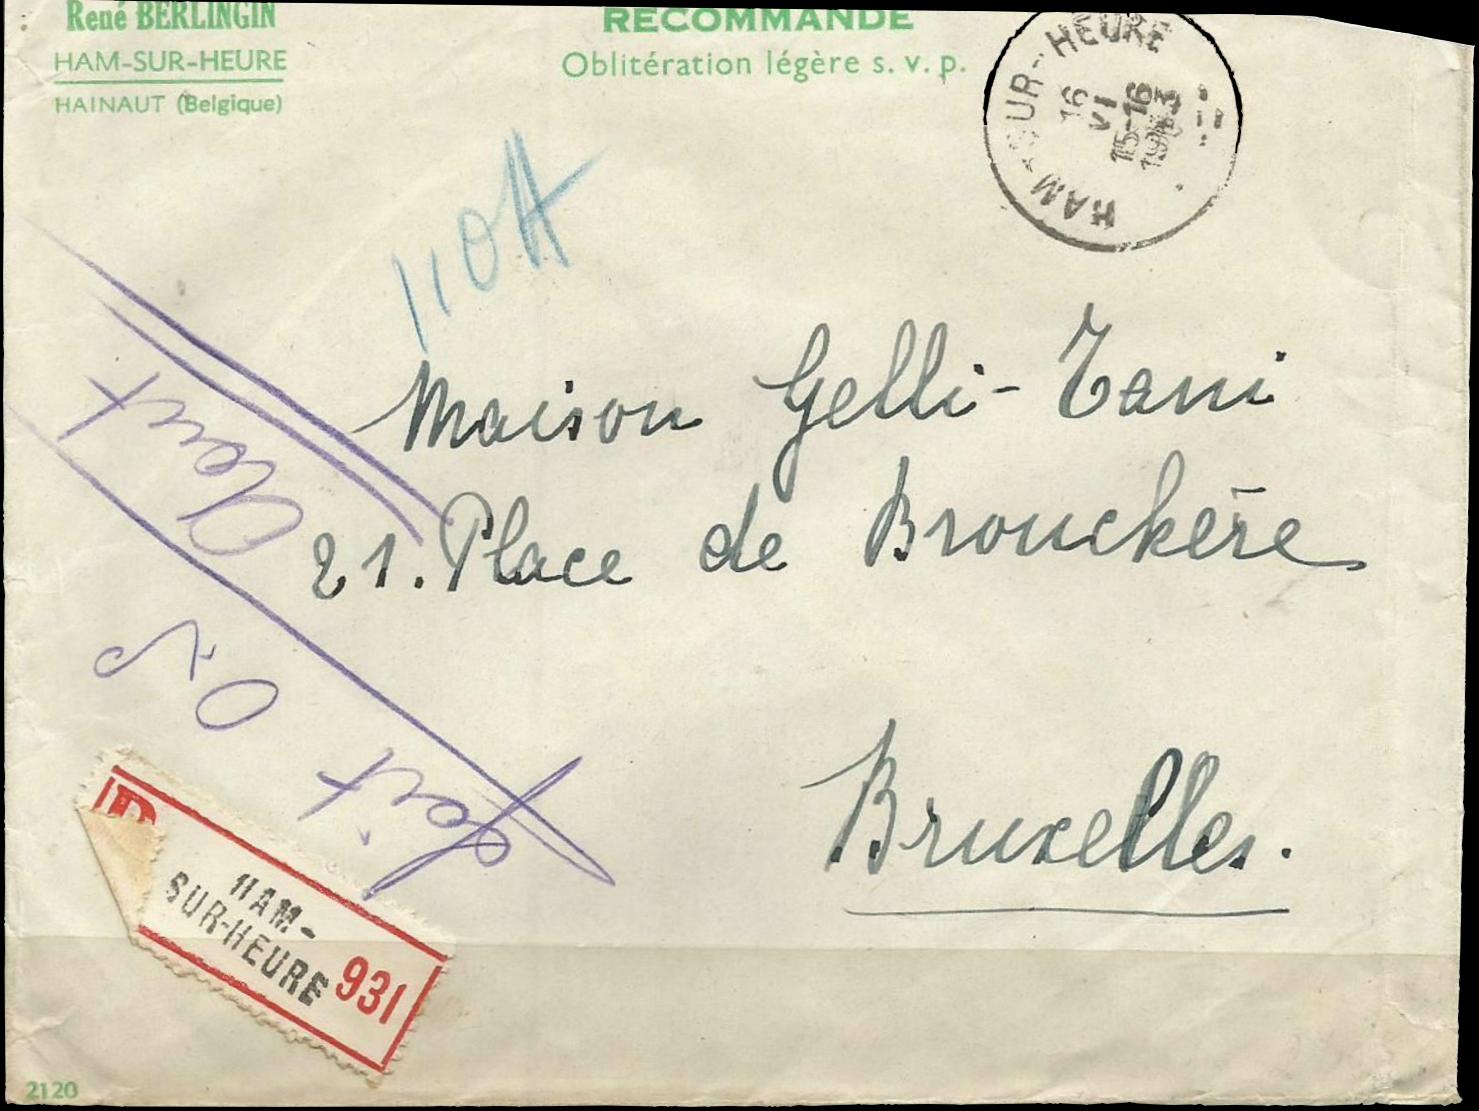 René BERLINGIN
HAM-SUR-HEURE
HAINAUT (Belgique)
RECOMMANDÉ
Oblitération légère s. v. p.
HAM-SUR-HEURE
16
VI
15-16
110A
Maison Gelli-Tani
21. Place de Brouckère
Bruxelles.
R
HAM-
SUR-HEURE
931
2120